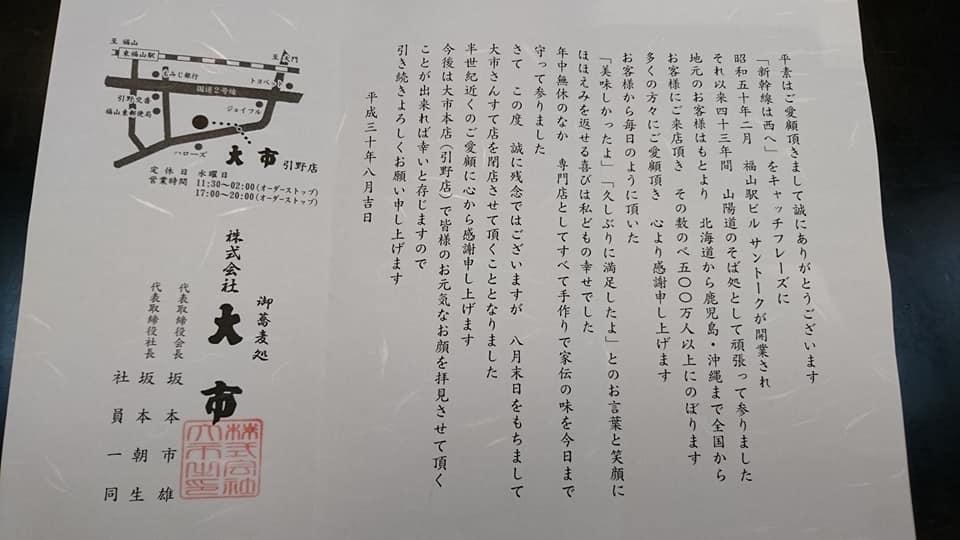 平素はご愛顧頂きまして誠にありがとうございます
「新幹線は西へ」をキャッチフレーズに
昭和五十年二月 福山駅ビル サントークが開業され
それ以来四十三年間 山陽道のそば処として頑張って参りました
地元のお客様はもとより 北海道から鹿児島・沖縄まで全国から
お客様にご来店頂き その数のべ五〇〇万人以上にのぼります
多くの方々にご愛顧頂き 心より感謝申し上げます
お客様から毎日のように頂いた
「美味しかったよ」「久しぶりに満足したよ」とのお言葉と笑顔に
ほほえみを返せる喜びは私どもの幸せでした
年中無休のなか 専門店としてすべて手作りで家伝の味を今日まで
守って参りました
さて この度 誠に残念ではございますが 八月末日をもちまして
大市さんすて店を閉店させて頂くこととなりました
半世紀近くのご愛顧に心から感謝申し上げます
今後は大市本店(引野店)で皆様のお元気なお顔を拝見させて頂く
ことが出来れば幸いと存じますので
引き続きよろしくお願い申し上げます
平成三十年八月吉日
至 福山
東福山駅
至 大門
もみじ銀行
トヨペット
国道2号線
引野交番
福山東郵便局
ジョイフル
ハローズ
大市 引野店
定休日 水曜日
営業時間 11:30〜02:00(オーダーストップ)
17:00〜20:00(オーダーストップ)
御蕎麦処
株式会社 大市
代表取締役会長 坂本市雄
代表取締役社長 坂本朝生
社員一同
株式会社
大市之印